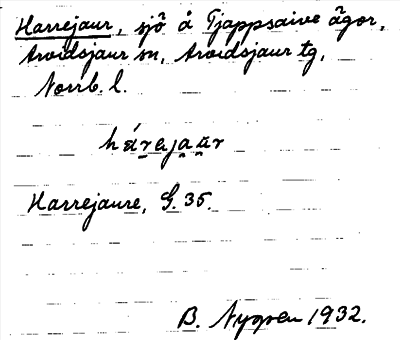 Harrejaur, sjö å Tjappsaive ägor,
Arvidsjaur sn, Arvidsjaur tg,
Norrb. l.
hárejaur
Harrejaure, G. 35.
B. Nygren 1932.